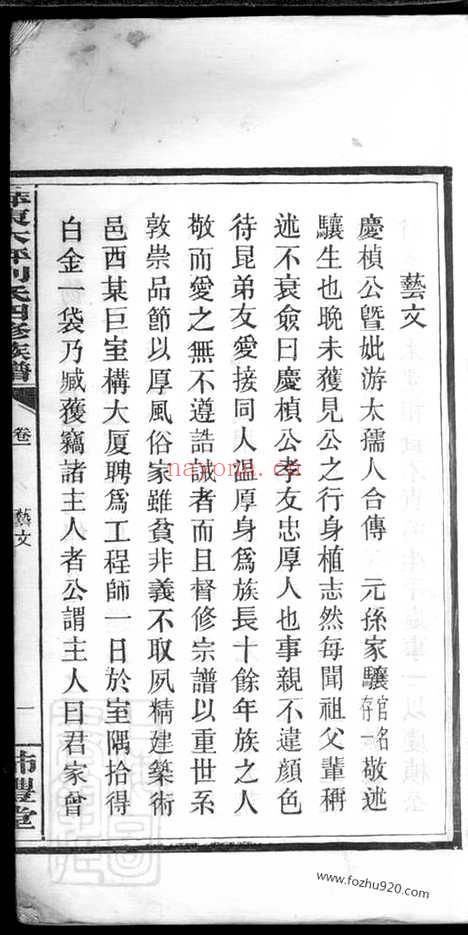 藝文
慶楨公曁妣游太孺人合傳　元孫家驤官名存一敬述
驤生也晚未獲見公之行身植志然每聞祖父輩稱
述不衰僉曰慶楨公孝友忠厚人也事親不違顏色
待昆弟友愛接同人溫厚身爲族長十餘年族之人
敬而愛之無不遵誥誡者而且督修宗譜以重世系
敦崇品節以厚風俗家雖貧非義不取夙精建築術
邑西某巨室構大厦聘爲工程師一日於室隅拾得
白金一袋乃臧獲竊諸主人者公謂主人曰君家曾
劉氏四修族譜
卷一
藝文
一
豐堂
nayona.cn
www.fozhu920.com